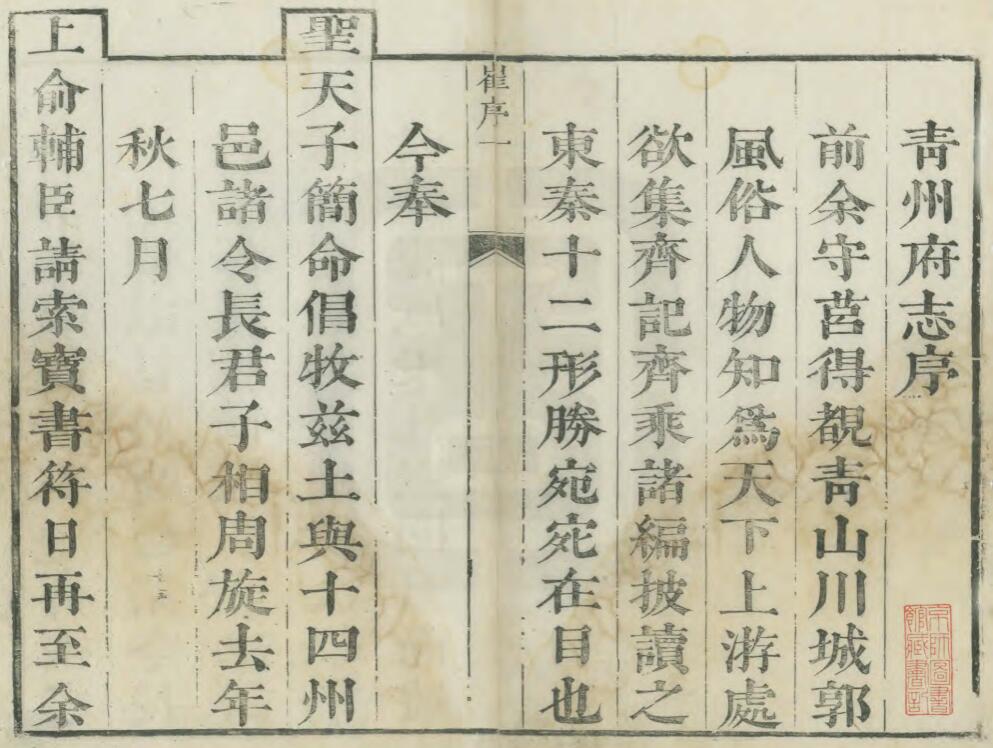 青州府志序
前余守莒得覩青山川城郭
風俗人物知爲天下上游處
欲集齊記齊乘諸編披讀之
東秦十二形勝宛宛在目也
崔序一
今奉
聖天子簡命倡牧兹土與十四州
邑諸令長君子相周旋去年
秋七月
上俞輔臣請索寶書符日再至余
京師圖書
館藏書記